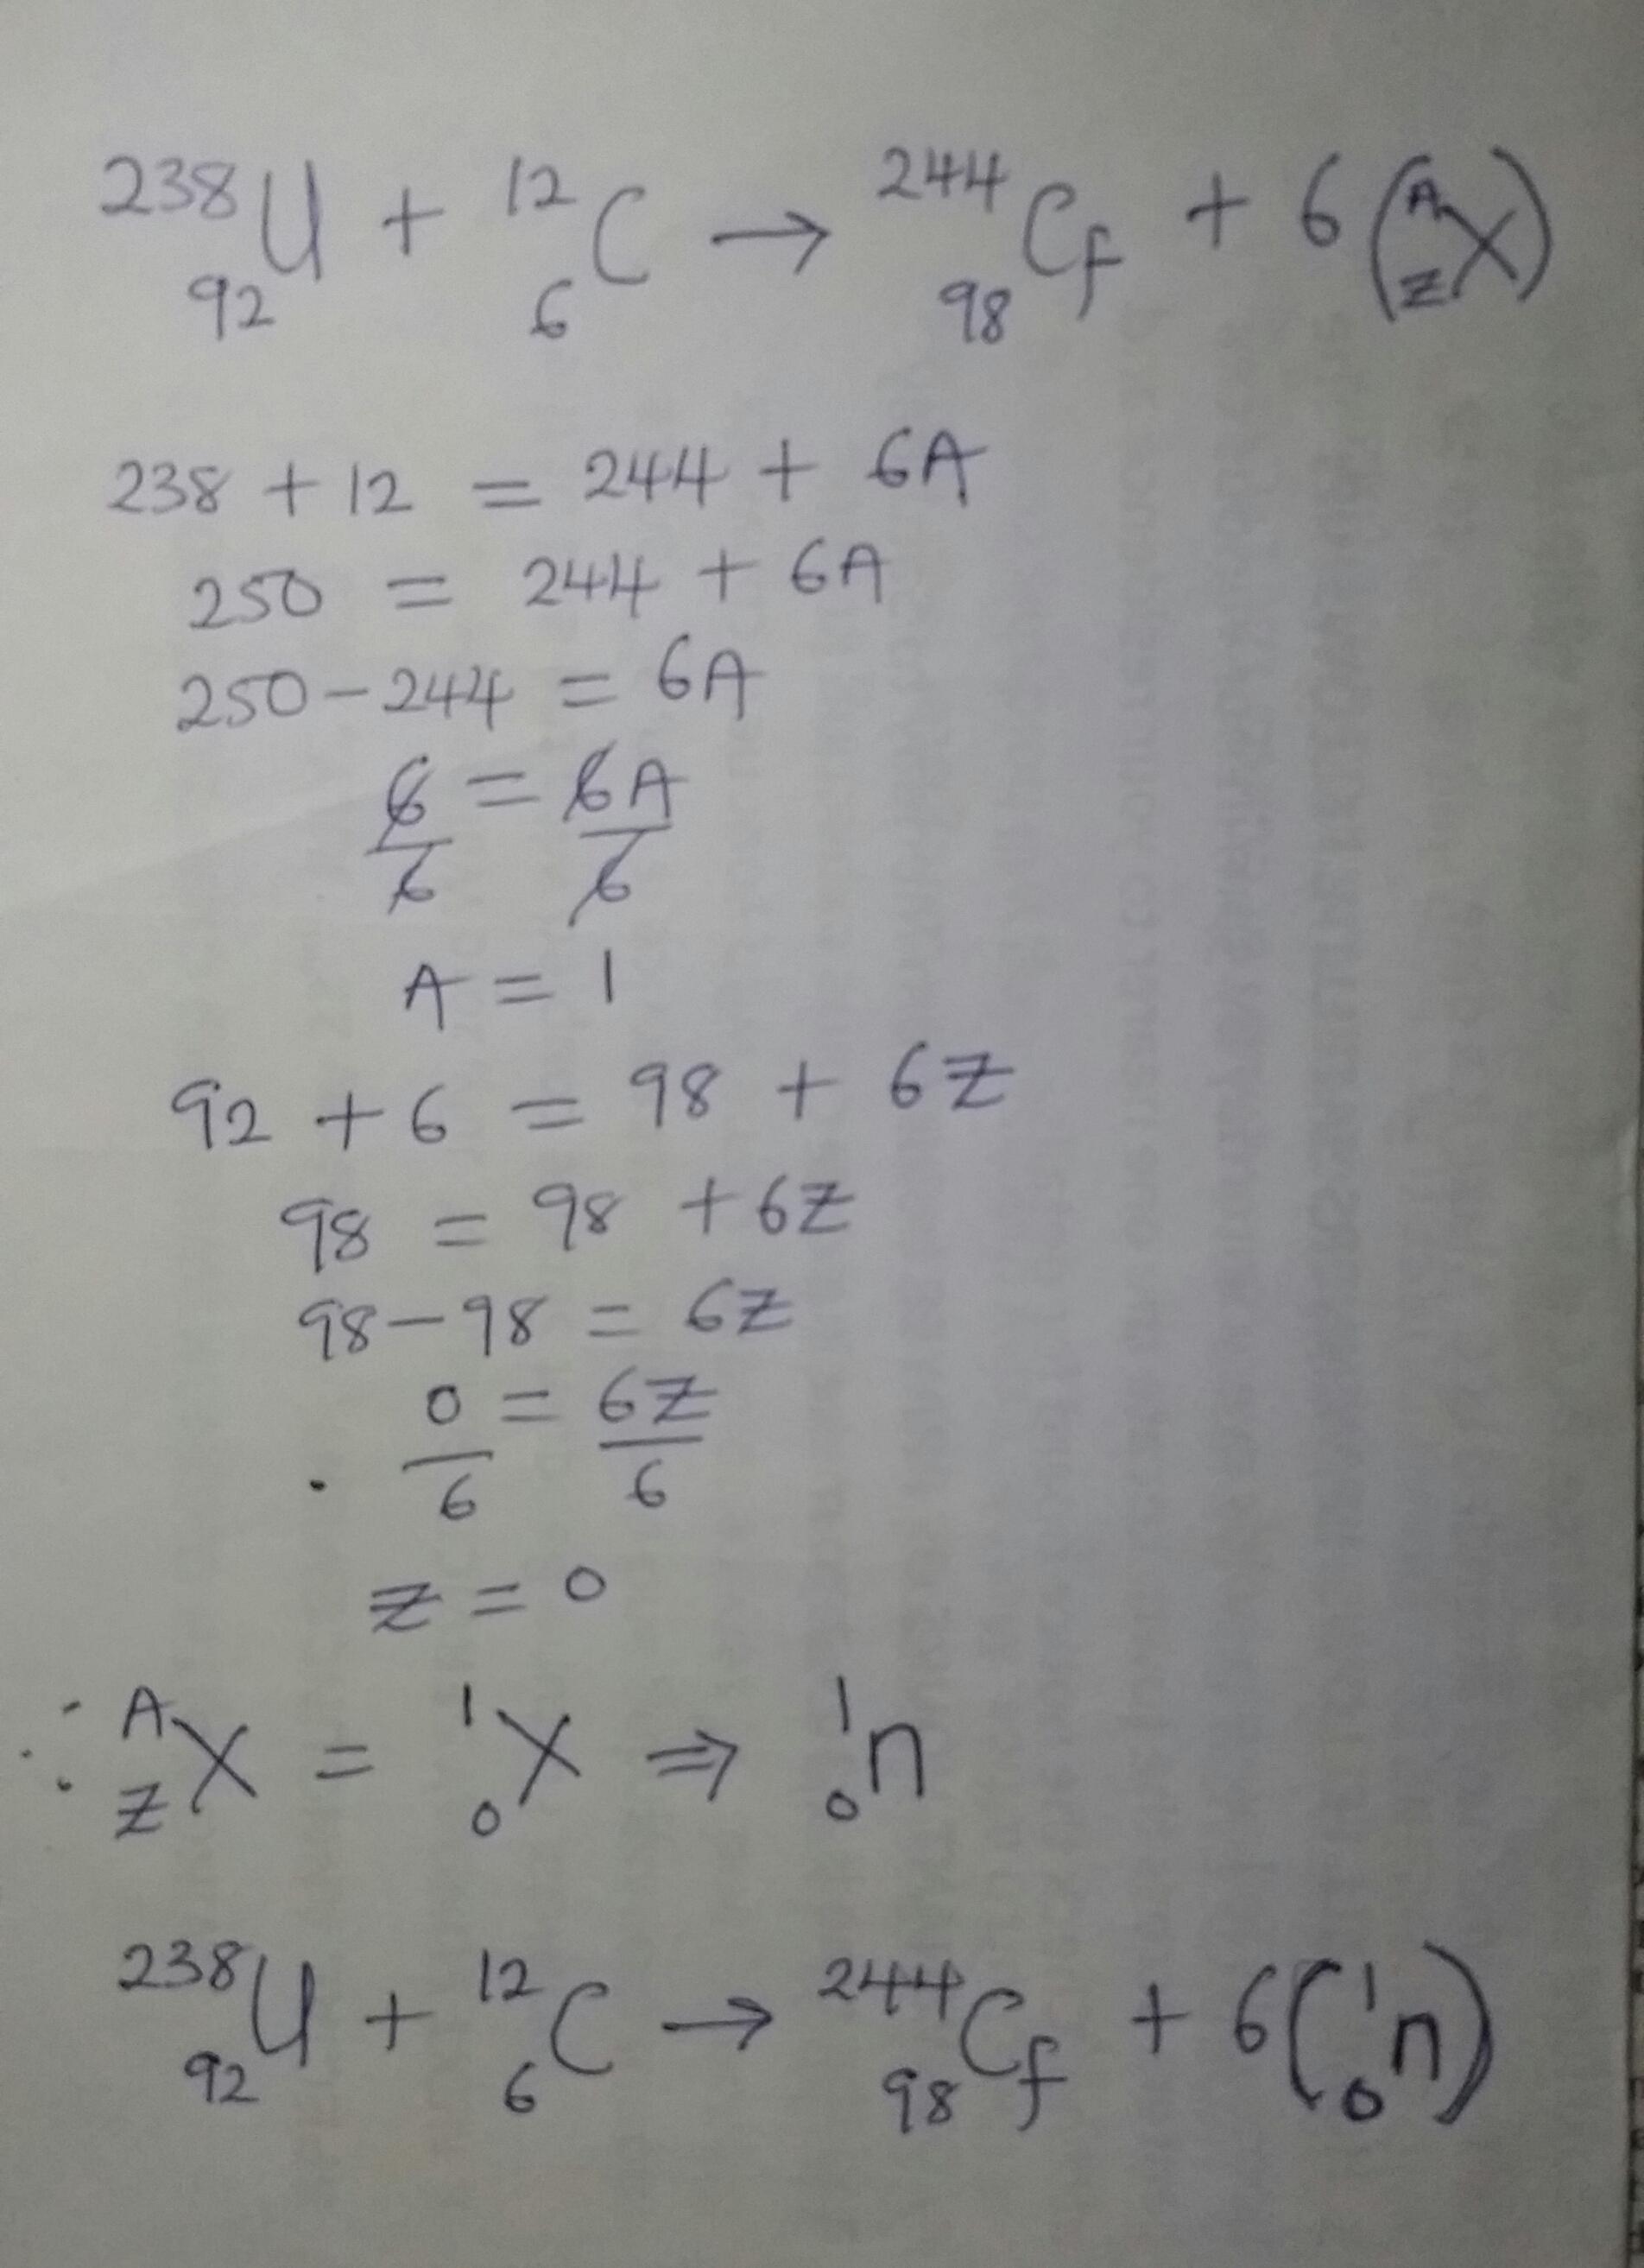 ²³⁸₉₂U + ¹²₆C → ²⁴⁴₉₈Cf + 6(ᴬzX)
238 + 12 = 244 + 6A
250 = 244 + 6A
250 - 244 = 6A
6/6 = 6A/6
A = 1
92 + 6 = 98 + 6Z
98 = 98 + 6Z
98 - 98 = 6Z
0/6 = 6Z/6
Z = 0
∴ ᴬzX = ¹₀X ⇒ ¹₀n
²³⁸₉₂U + ¹²₆C → ²⁴⁴₉₈Cf + 6(¹₀n)